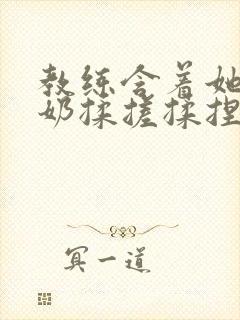 教练含着她
奶揉搓揉捏
冥一道